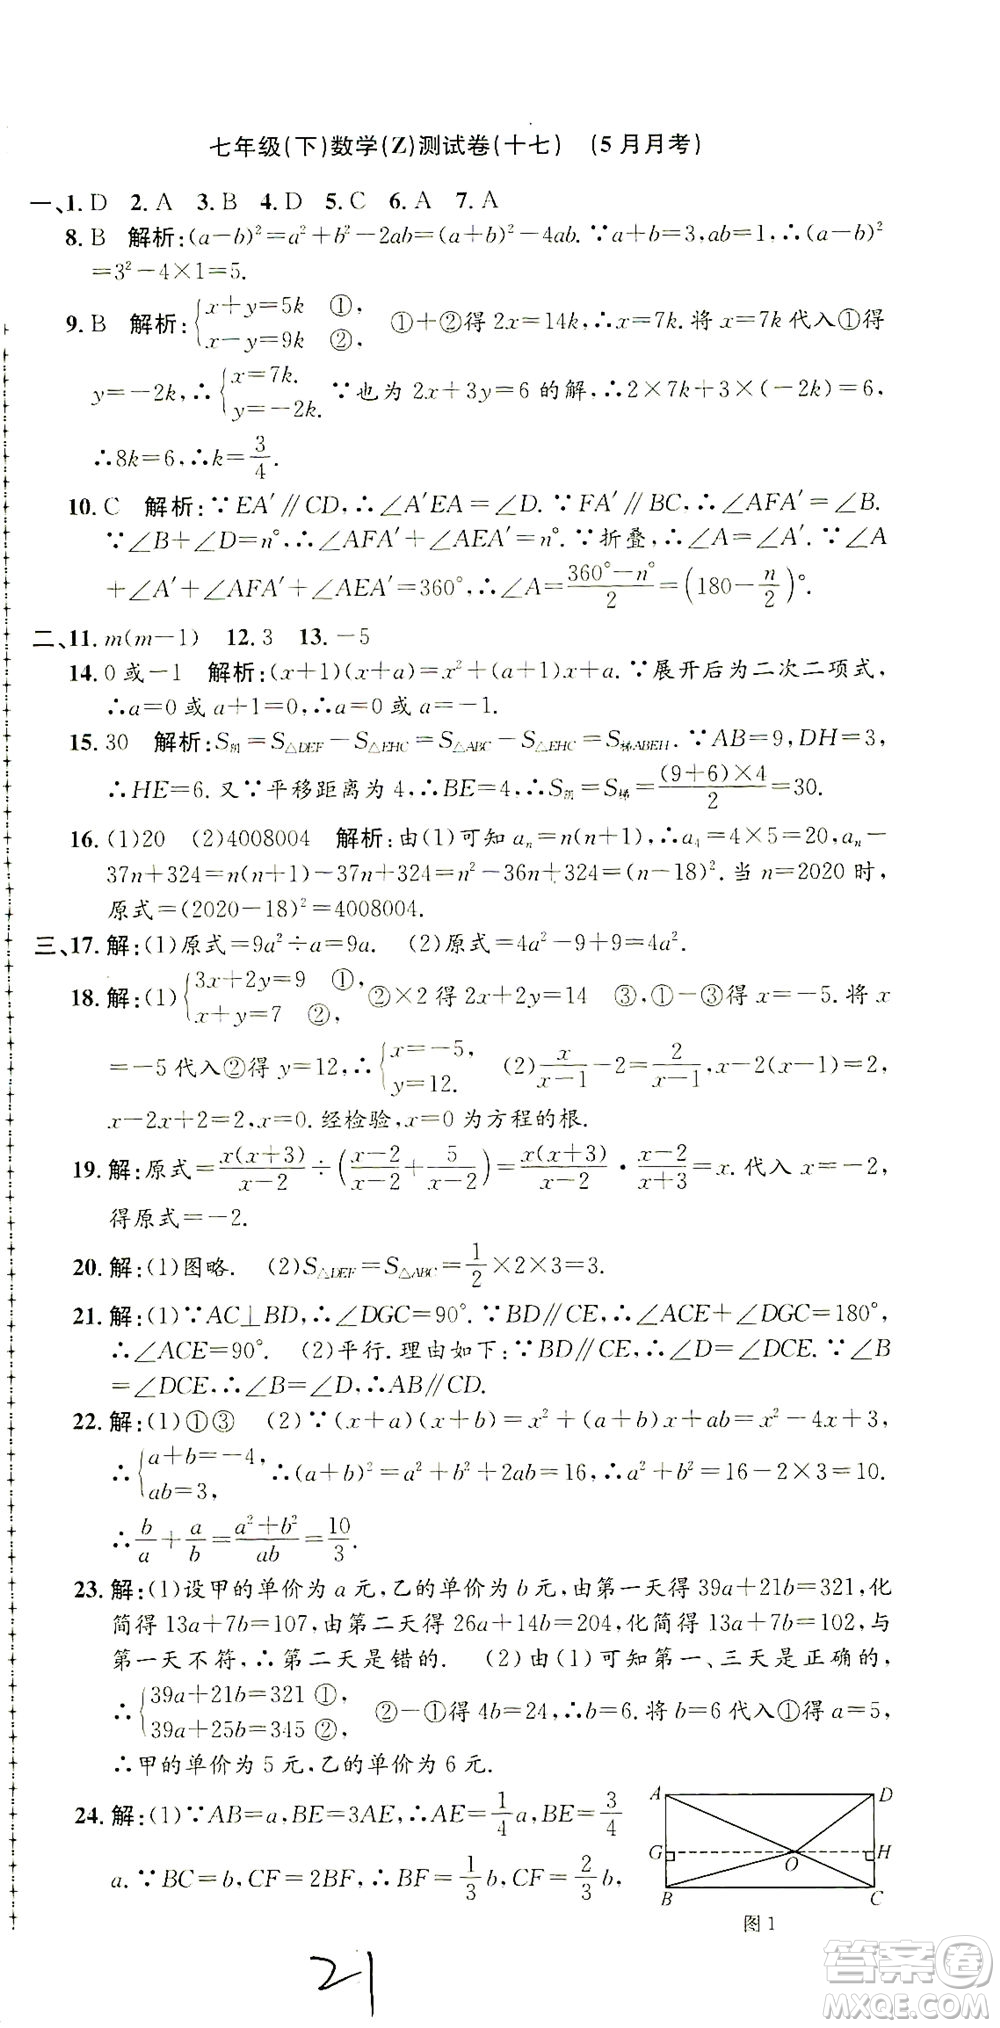 七年级(下)数学(Z)测试卷(十七) (5月月考)
一、1. D 2. A 3. B 4. D 5. C 6. A 7. A
8. B 解析:(a-b)²=a²+b²-2ab=(a+b)²-4ab. ∵a+b=3,ab=1,∴(a-b)²
=3²-4×1=5.
9. B 解析:{x+y=5k ①, x-y=9k ②, ①+②得2x=14k,∴x=7k.将x=7k代入①得
y=-2k,∴{x=7k. y=-2k. ∵也为2x+3y=6的解,∴2×7k+3×(-2k)=6,
∴8k=6,∴k=3/4.
10. C 解析:∵EA′∥CD,∴∠A′EA=∠D.∵FA′∥BC,∴∠AFA′=∠B.
∵∠B+∠D=n°,∴∠AFA′+∠AEA′=n°.∵折叠,∴∠A=∠A′.∵∠A
+∠A′+∠AFA′+∠AEA′=360°,∴∠A=(360°-n°)/2=(180-n/2)°.
二、11. m(m-1) 12. 3 13. -5
14. 0或-1 解析:(x+1)(x+a)=x²+(a+1)x+a.∵展开后为二次二项式,
∴a=0或a+1=0,∴a=0或a=-1.
15. 30 解析:S阴=S△DEF-S△EHC=S△ABC-S△EHC=S梯ABEH.∵AB=9,DH=3,
∴HE=6.又∵平移距离为4,∴BE=4,∴S阴=S梯=(9+6)×4/2=30.
16. (1)20 (2)4008004 解析:由(1)可知aₙ=n(n+1),∴a₄=4×5=20,aₙ-
37n+324=n(n+1)-37n+324=n²-36n+324=(n-18)².当n=2020时,
原式=(2020-18)²=4008004.
三、17. 解:(1)原式=9a²÷a=9a. (2)原式=4a²-9+9=4a².
18. 解:(1){3x+2y=9 ① x+y=7 ②, ②×2得2x+2y=14 ③,①-③得x=-5.将x
=-5代入②得y=12,∴{x=-5, y=12. (2)x/(x-1)-2=2/(x-1),x-2(x-1)=2,
x-2x+2=2,x=0.经检验,x=0为方程的根.
19. 解:原式=x(x+3)/(x-2)÷((x-2)/(x-2)+5/(x-2))=x(x+3)/(x-2)·(x-2)/(x+3)=x.代入x=-2,
得原式=-2.
20. 解:(1)图略. (2)S△DEF=S△ABC=1/2×2×3=3.
21. 解:(1)∵AC⊥BD,∴∠DGC=90°.∵BD∥CE,∴∠ACE+∠DGC=180°,
∴∠ACE=90°. (2)平行.理由如下:∵BD∥CE,∴∠D=∠DCE.∵∠B
=∠DCE,∴∠B=∠D,∴AB∥CD.
22. 解:(1)①③ (2)∵(x+a)(x+b)=x²+(a+b)x+ab=x²-4x+3,
∴{a+b=-4, ab=3, ∴(a+b)²=a²+b²+2ab=16,∴a²+b²=16-2×3=10.
∴b/a+a/b=(a²+b²)/ab=10/3.
23. 解:(1)设甲的单价为a元,乙的单价为b元,由第一天得39a+21b=321,化
简得13a+7b=107,由第二天得26a+14b=204,化简得13a+7b=102,与
第一天不符,∴第二天是错的. (2)由(1)可知第一、三天是正确的,
∴{39a+21b=321 ①, 39a+25b=345 ②, ②-①得4b=24,∴b=6.将b=6代入①得a=5,
∴甲的单价为5元,乙的单价为6元.
24. 解:(1)∵AB=a,BE=3AE,∴AE=1/4a,BE=3/4
a.∵BC=b,CF=2BF,∴BF=1/3b,CF=2/3b,
A D
G O H
B C
图1
21
答案卷
MXQE.COM